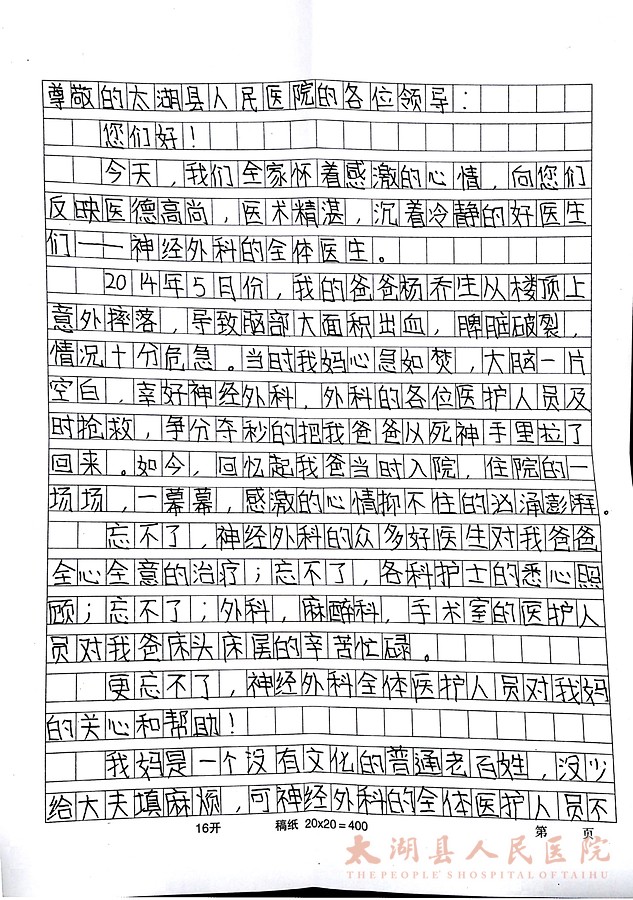 尊敬的太湖县人民医院的各位领导：
您们好！
今天，我们全家怀着感激的心情，向您们
反映医德高尚，医术精湛，沉着冷静的好医生
们——神经外科的全体医生。
2014年5月份，我的爸爸杨乔生从楼顶上
意外摔落，导致脑部大面积出血，脾脏破裂，
情况十分危急。当时我妈心急如焚，大脑一片
空白，幸好神经外科，外科的各位医护人员及
时抢救，争分夺秒的把我爸爸从死神手里拉了
回来。如今，回忆起我爸当时入院，住院的一
场场，一幕幕，感激的心情抑不住的汹涌澎湃。
忘不了，神经外科的众多好医生对我爸爸
全心全意的治疗；忘不了，各科护士的悉心照
顾；忘不了；外科，麻醉科，手术室的医护人
员对我爸床头床尾的辛苦忙碌。
更忘不了，神经外科全体医护人员对我妈
的关心和帮助！
我妈是一个没有文化的普通老百姓，没少
给大夫填麻烦，可神经外科的全体医护人员不
16开 稿纸 20×20=400 第 页
太湖县人民医院
THE PEOPLE'S HOSPITAL OF TAIHU